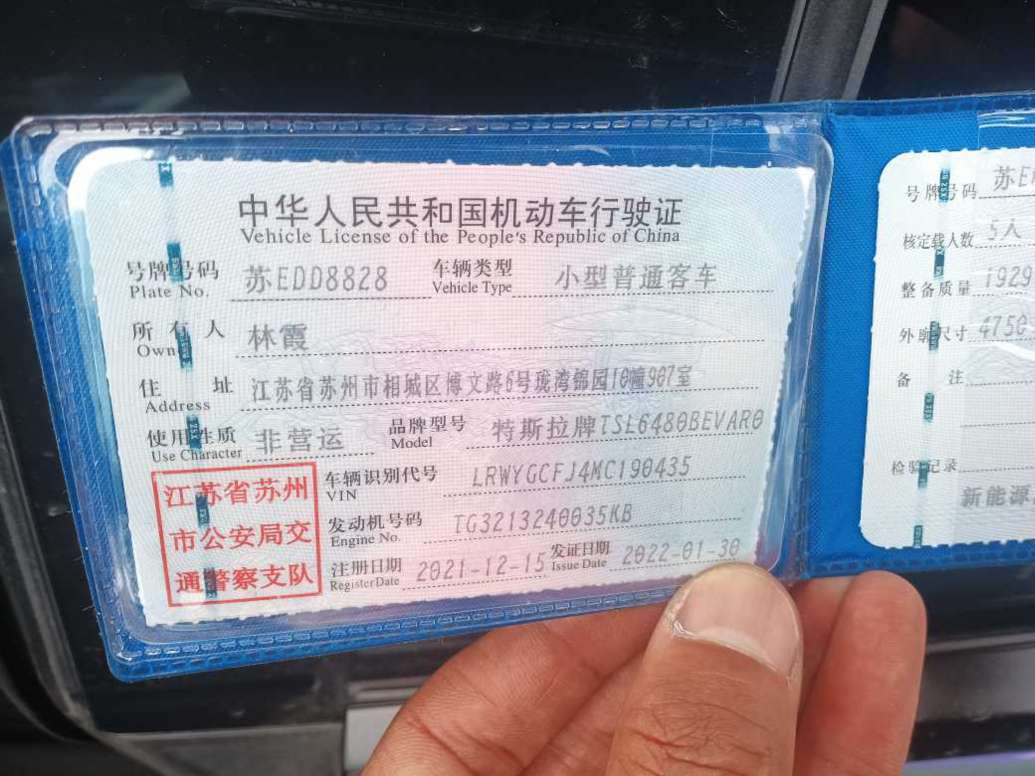 中华人民共和国机动车行驶证
Vehicle License of the People's Republic of China
号牌号码 苏EDD8828 车辆类型 小型普通客车
Plate No. Vehicle Type
所有人 林霞
Owner
住址 江苏省苏州市相城区博文路6号珑湾锦园10幢907室
Address
使用性质 非营运 品牌型号 特斯拉牌TSL6480BEVAR0
Use Character Model
车辆识别代号 LRWYGCFJ4MC190435
VIN
发动机号码 TG3213240035KB
Engine No.
注册日期 2021-12-15 发证日期 2022-01-30
Register Date Issue Date
江苏省苏州
市公安局交
通警察支队
号牌号码 苏E
核定载人数 5人
整备质量 1929
外廓尺寸 4750
备注
检验记录
新能源